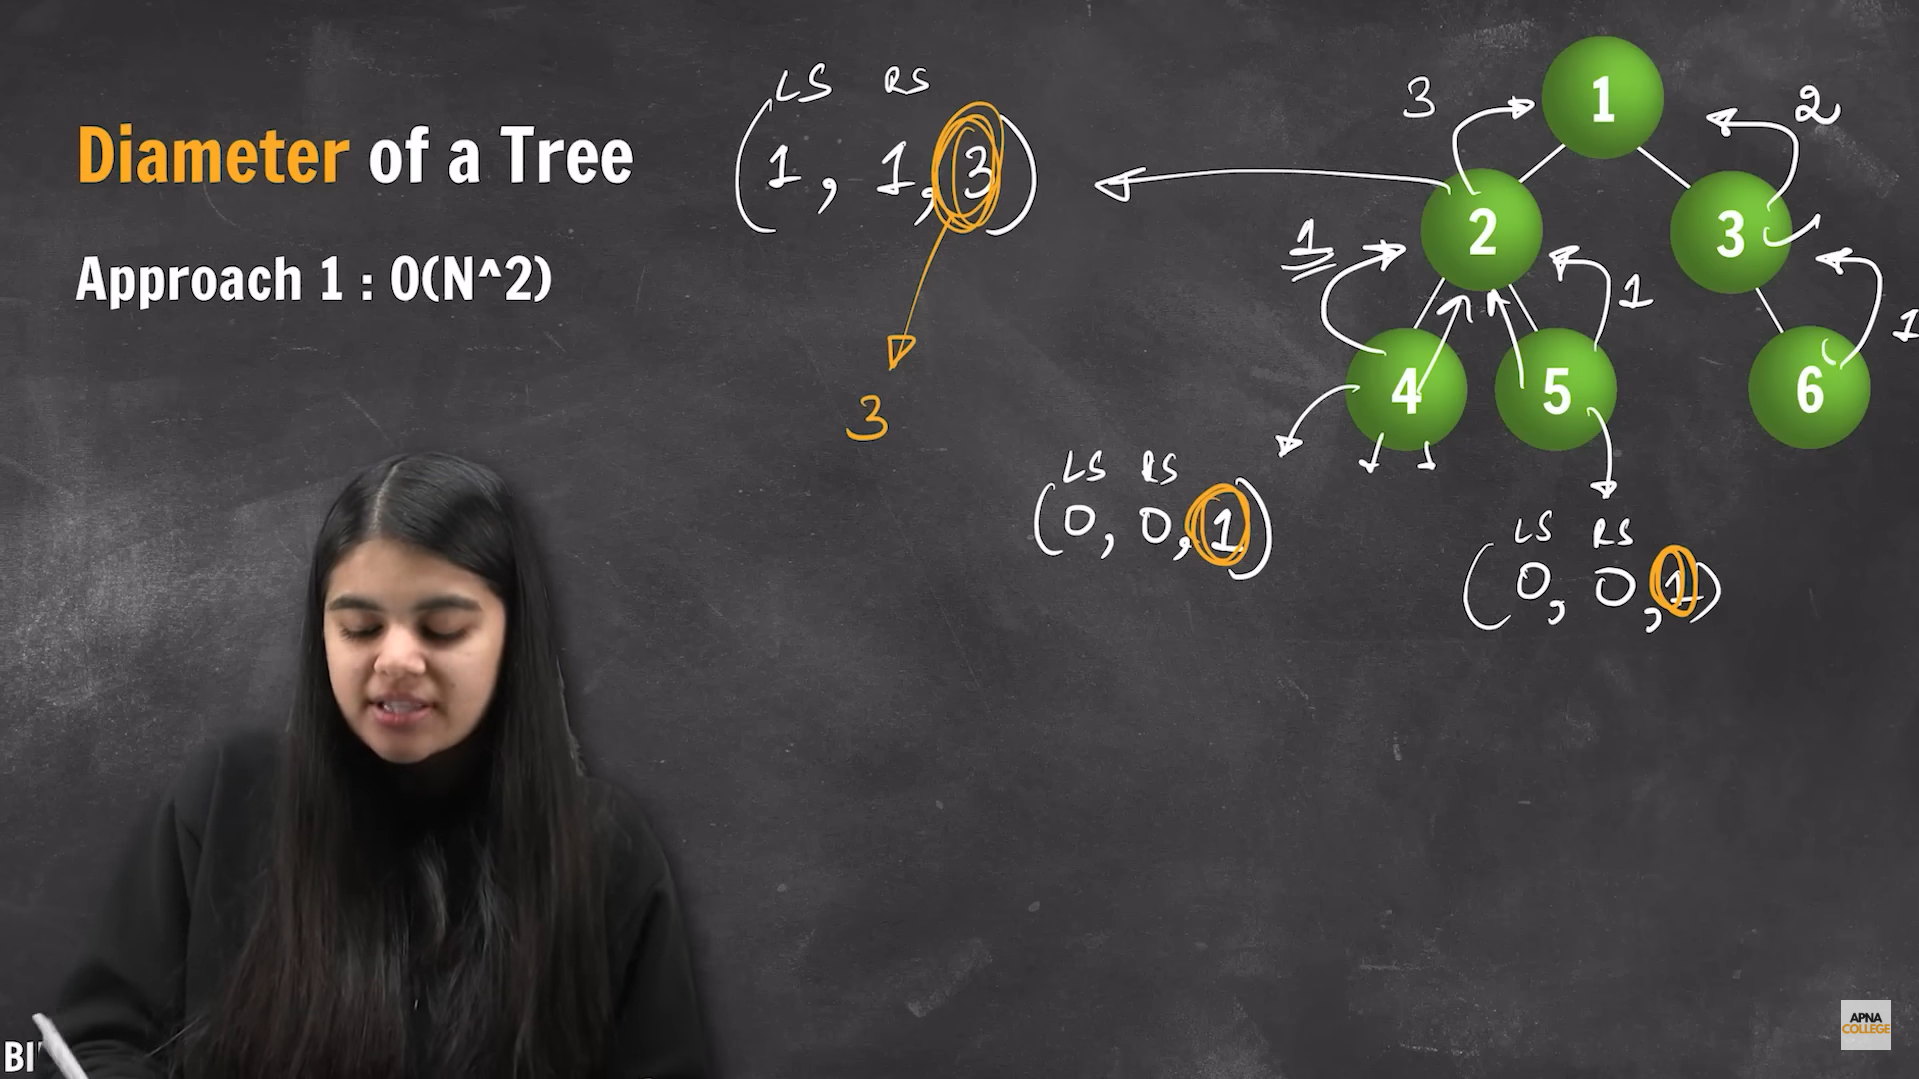 Diameter of a Tree
Approach 1 : O(N^2)
LS RS
(1, 1, 3)
3
3
2
1
1
1
1
2
3
4
5
6
LS RS
(0, 0, 1)
LS RS
(0, 0, 1)
BI
APNA
COLLEGE